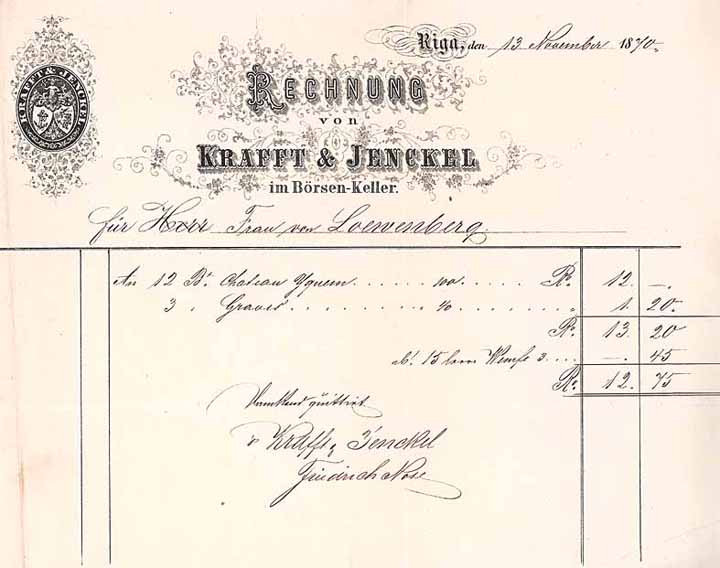 KRAFFT & JENCKEL
Riga, den 13 November 1870.
RECHNUNG
von
KRAFFT & JENCKEL
im Börsen-Keller.
für Herr Frau von Loewenberg.
An 12 Bt. Chateau Yquem . . . . 100 . . . . . Ro. 12. —.
3 " Graves . . . . . . . . 40 . . . . . . " 1. 20.
Ro. 13 20
ab: 15 leere 3 . . . . —. 45
Ro. 12. 75
Dankend quittirt
Krafft & Jenckel
Friedrich Nose